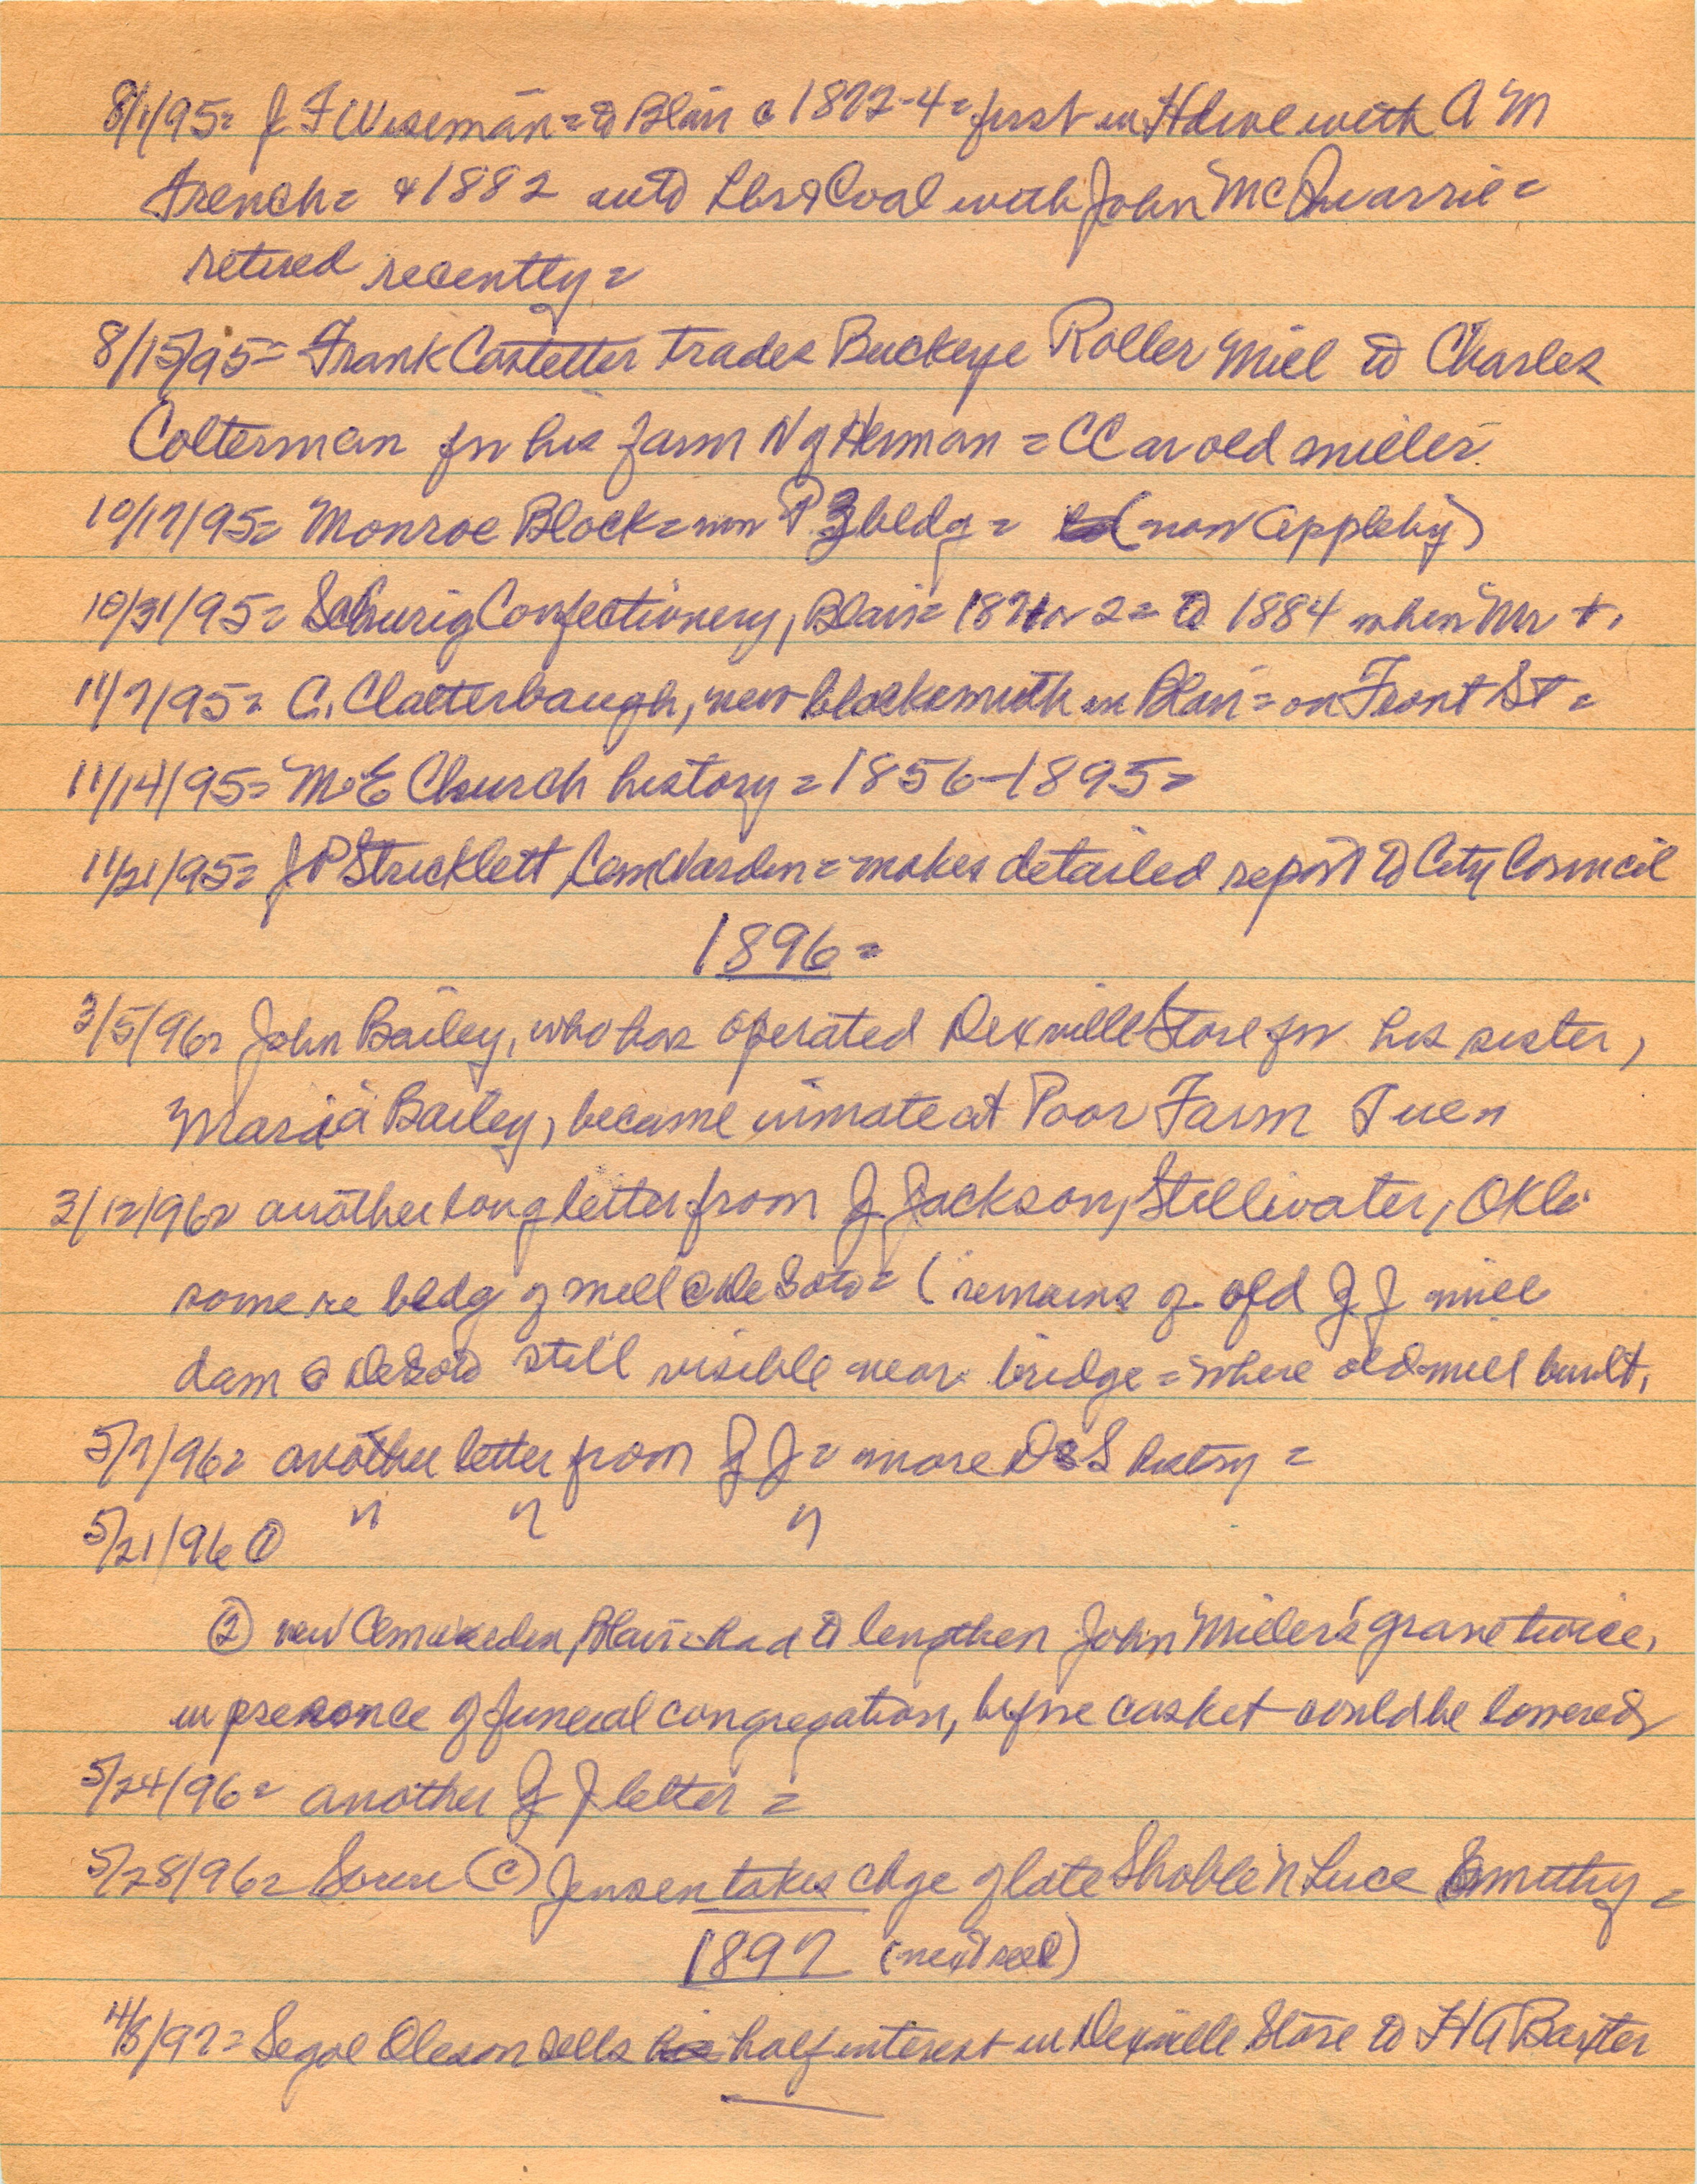 8/1/95= J F Wiseman= to Blair c 1872-4= first in Hdwe with A M
French= + 1882 into Lbr & Coal with John McQuarrie=
retired recently=
8/15/95= Frank Castetter trades Buckeye Roller Mill to Charles
Colterman for his farm N of Herman = CC an old miller.
10/17/95= Monroe Block= new bldg= (now Appleby)
10/31/95= Schurig Confectionery, Blair= 1871 or 2= to 1884 when Mr +.
11/7/95= C. Clatterbaugh, new blacksmith in Blair= on Front St=
11/14/95= M.E Church history= 1856-1895=
11/21/95= J P Stricklett, = makes detailed report to City Council
1896=
3/5/96= John Bailey, who has operated Dexville Store for his sister,
Maria Bailey, became inmate at Poor Farm Tues
3/12/96= another long letter from J. Jackson, Stillwater, Okla
some re bldg of mill @ De Soto= (remains of old J J mill
dam @ DeSoto still visible near bridge= where old mill built.
5/7/96= another letter from J J= more DeS history=
5/21/96 ① " " "
② new Blair= had to lengthen John Miller's grave twice,
in presence of funeral congregation, before casket could be lowered
5/24/96= another J J letter =
5/28/96= Soren (C) Jensen takes chge of late Luce Smithy=
1897 (next reel)
/8/97= Oleson sells his half interest in Dexville Store to H A Baxter